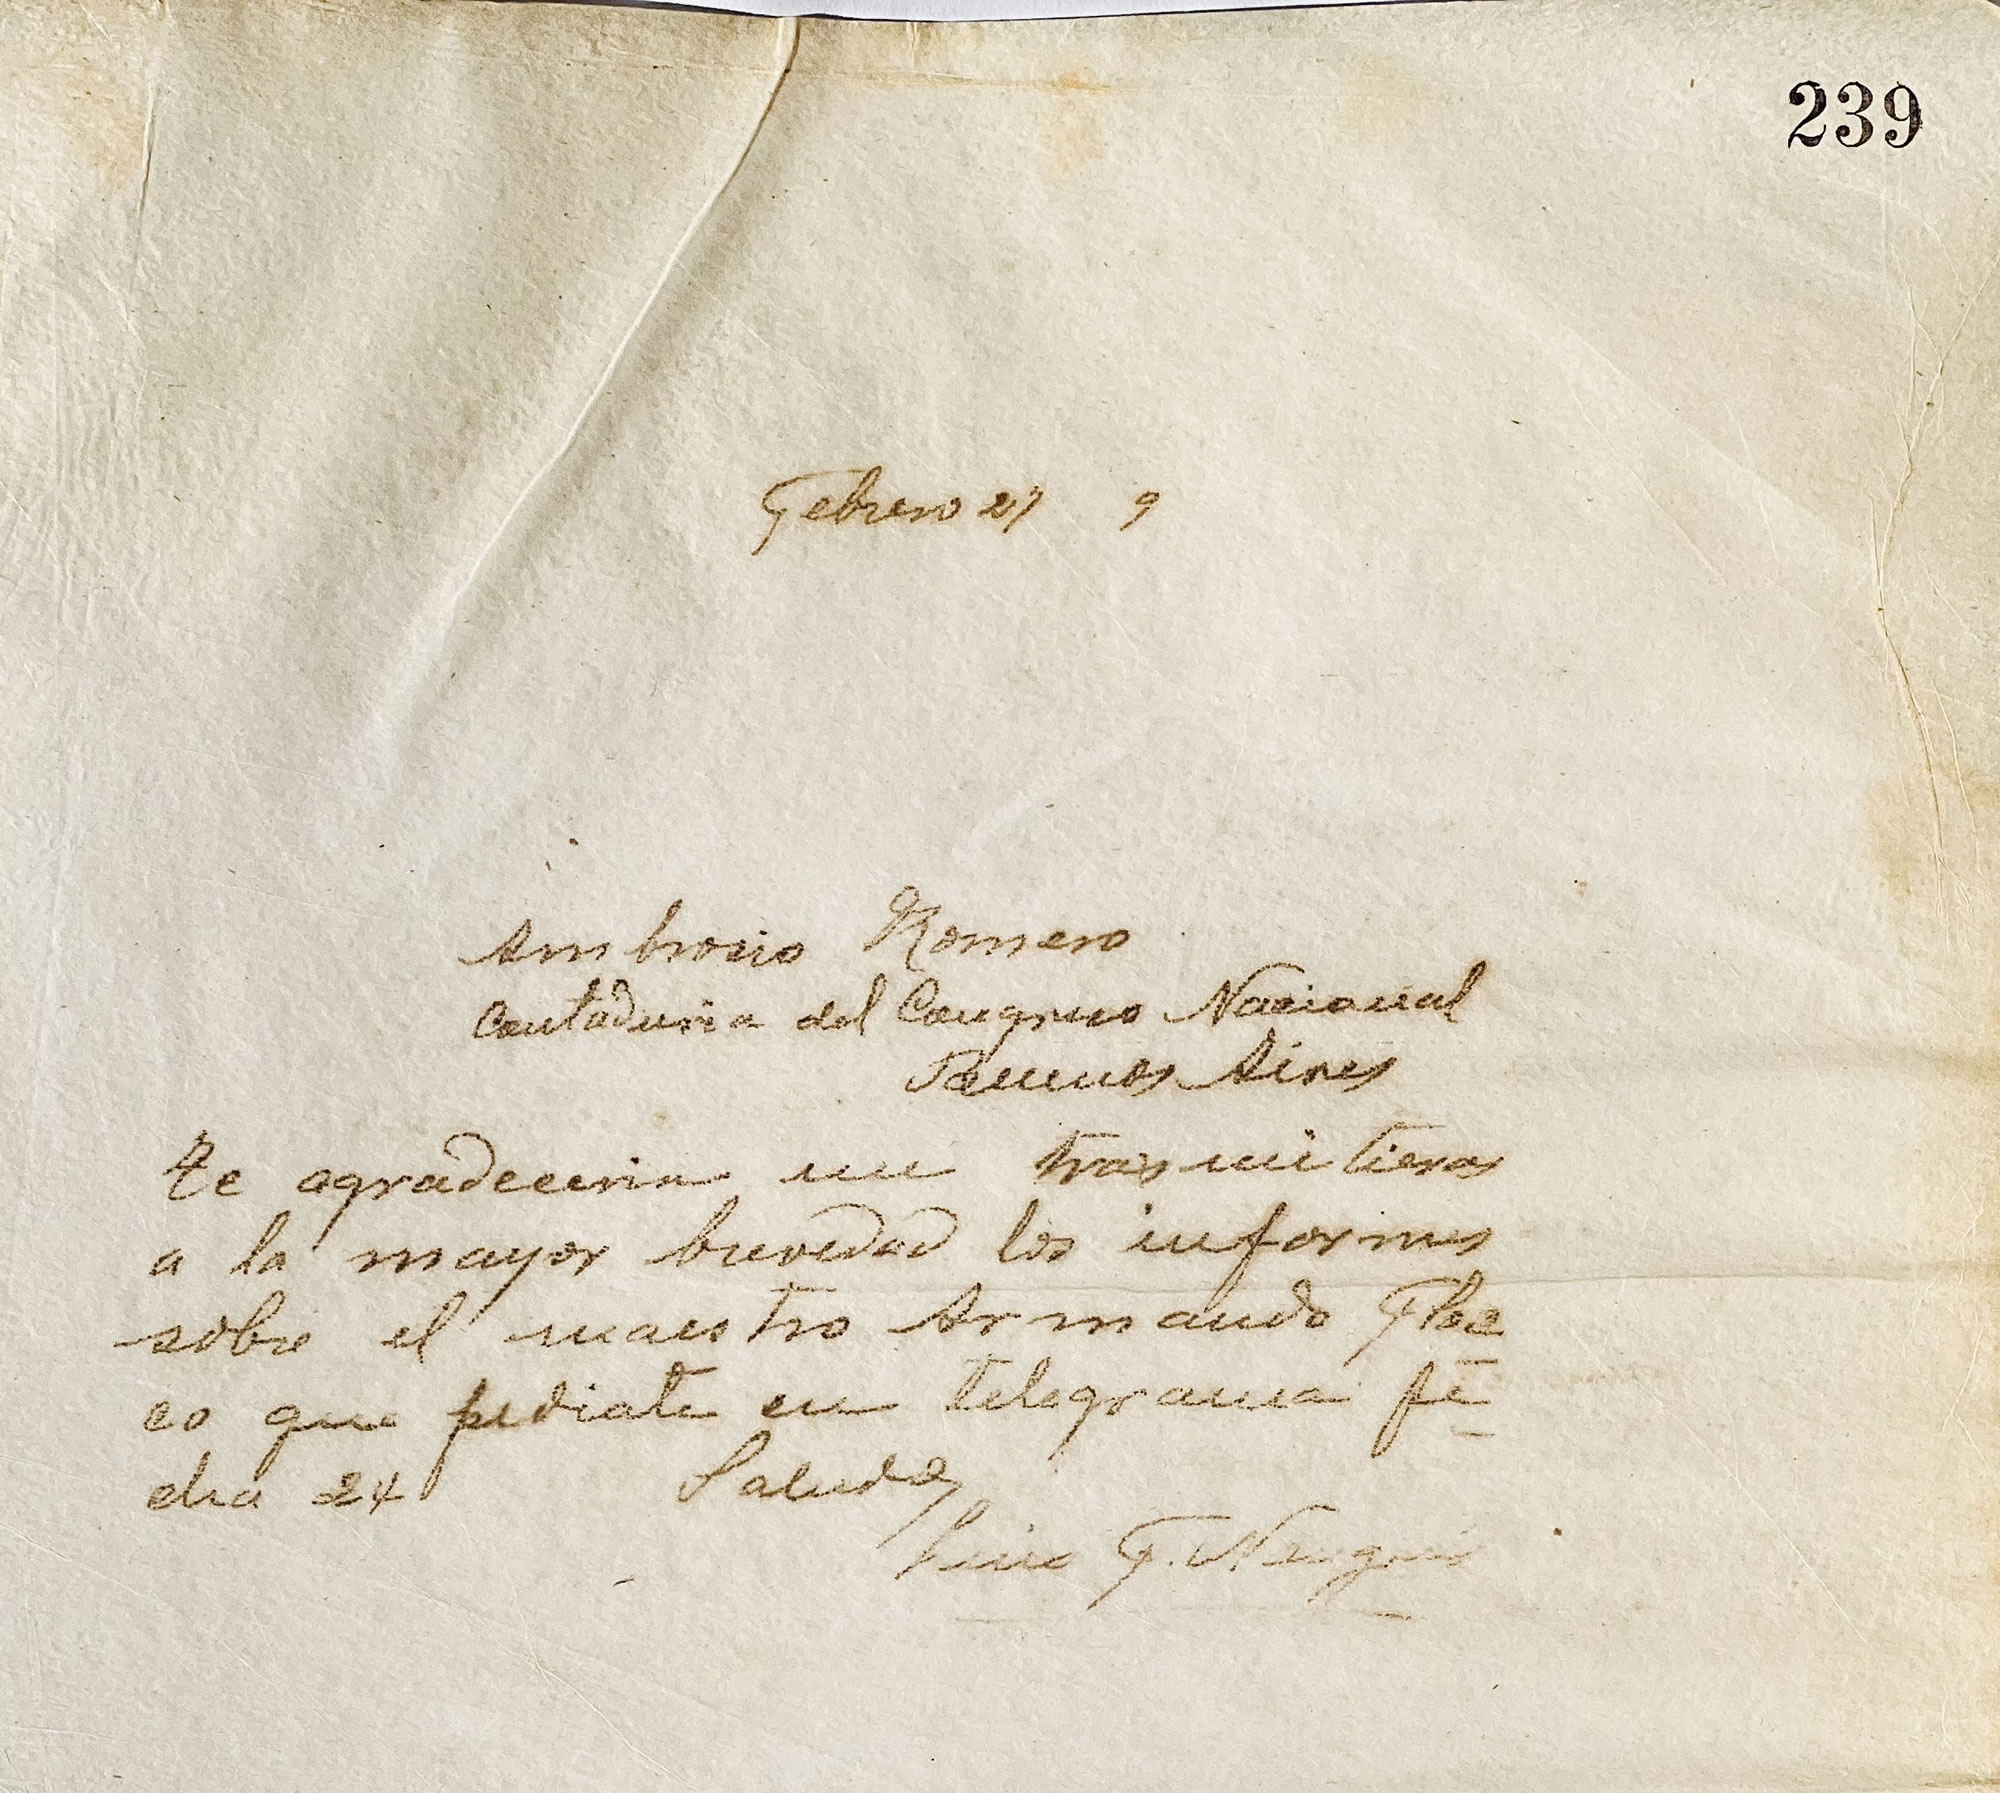 239
Febrero 27 9
Ambrosio Romero
Contaduria del Congreso Nacional
Buenos Aires
Te agradeceria me trasmitieras
a la mayor brevedad los informes
sobre el maestro Armando Floc
co que pediate en telegrama fe
cha 24 Saluda
Luis F. Nougués